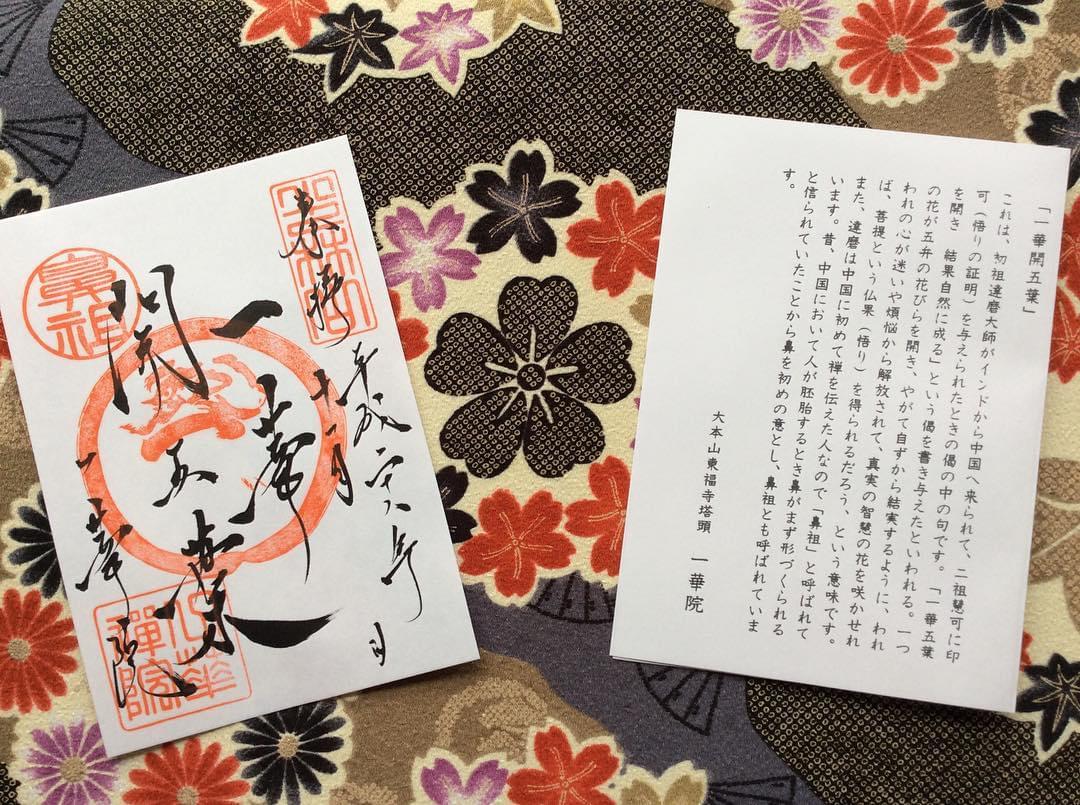 「一華開五葉」
これは、初祖達磨大師がインドから中国へ来られて、二祖慧可に印
可(悟りの証明)を与えられたときの偈の中の句です。「一華五葉
を開き　結果自然に成る」という偈を書き与えたといわれる。一つ
の花が五弁の花びらを開き、やがて自ずから結実するように、われ
われの心が迷いや煩悩から解放されて、真実の智慧の花を咲かせれ
ば、菩提という仏果(悟り)を得られるだろう、という意味です。
また、達磨は中国に初めて禅を伝えた人なので「鼻祖」と呼ばれて
います。昔、中国において人が胚胎するとき鼻がまず形づくられる
と信られていたことから鼻を初めの意とし、鼻祖とも呼ばれていま
す。
大本山東福寺塔頭　一華院
奉拝
平成二十八年
日
一華
開五葉
一華院
鼻祖